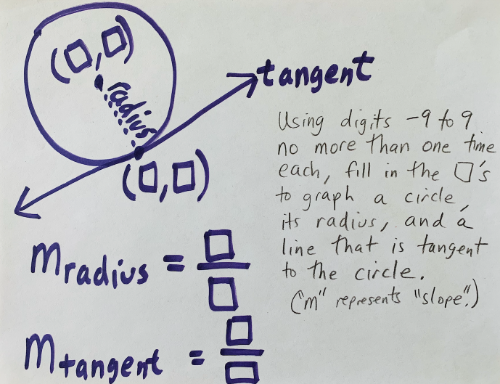 (□,□)
radius
tangent
(□,□)
Using digits -9 to 9
no more than one time
each, fill in the □'s
to graph a circle,
its radius, and a
line that is tangent
to the circle.
("m" represents "slope".)
m radius = □/□
m tangent = □/□